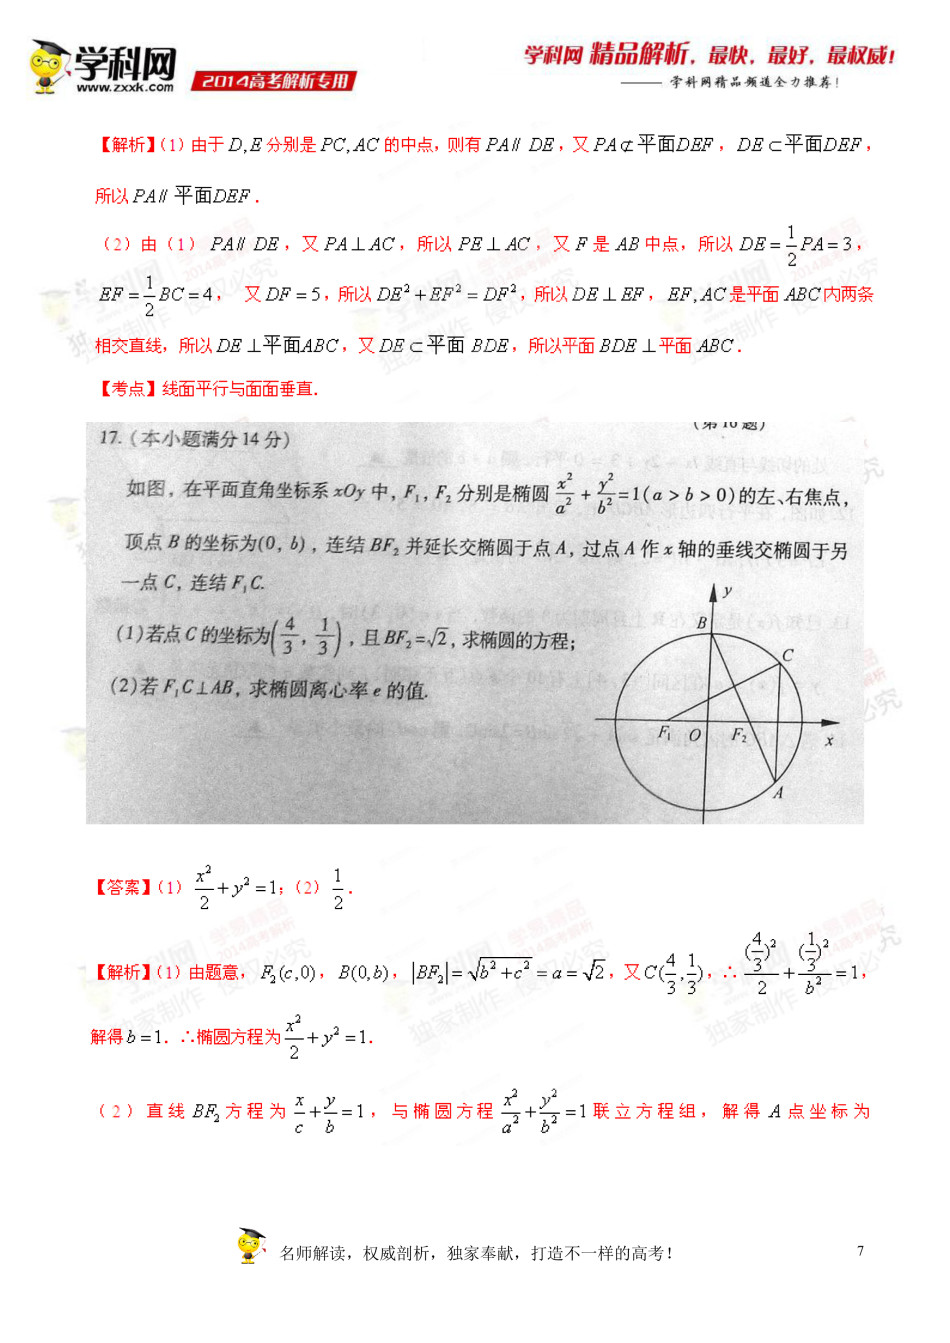 学科网
www.zxxk.com
2014高考解析专用
学科网 精品解析，最快，最好，最权威！
——— 学科网精品频道全力推荐！
【解析】（1）由于 D,E 分别是 PC,AC 的中点，则有 PA∥DE，又 PA⊄平面DEF，DE⊂平面DEF，
所以 PA∥平面DEF．
（2）由（1）PA∥DE，又 PA⊥AC，所以 PE⊥AC，又 F 是 AB 中点，所以 DE=1/2PA=3，
EF=1/2BC=4， 又 DF=5，所以 DE²+EF²=DF²，所以 DE⊥EF，EF,AC 是平面 ABC 内两条
相交直线，所以 DE⊥平面ABC，又 DE⊂平面 BDE，所以平面 BDE⊥平面 ABC．
【考点】线面平行与面面垂直．
(第16题)
17.(本小题满分14分)
如图，在平面直角坐标系 xOy 中，F₁，F₂ 分别是椭圆 x²/a²+y²/b²=1(a>b>0)的左、右焦点，
顶点 B 的坐标为(0，b)，连结 BF₂ 并延长交椭圆于点 A，过点 A 作 x 轴的垂线交椭圆于另
一点 C，连结 F₁C.
(1)若点 C 的坐标为(4/3，1/3)，且 BF₂=√2，求椭圆的方程；
(2)若 F₁C⊥AB，求椭圆离心率 e 的值.
y
B
C
F₁ O F₂ x
A
【答案】（1）x²/2+y²=1；（2）1/2．
【解析】（1）由题意，F₂(c,0)，B(0,b)，|BF₂|=√(b²+c²)=a=√2，又 C(4/3,1/3)，∴(4/3)²/2+(1/3)²/b²=1，
解得 b=1．∴椭圆方程为 x²/2+y²=1．
（2）直线 BF₂ 方程为 x/c+y/b=1，与椭圆方程 x²/a²+y²/b²=1 联立方程组，解得 A 点坐标为
名师解读，权威剖析，独家奉献，打造不一样的高考！
7